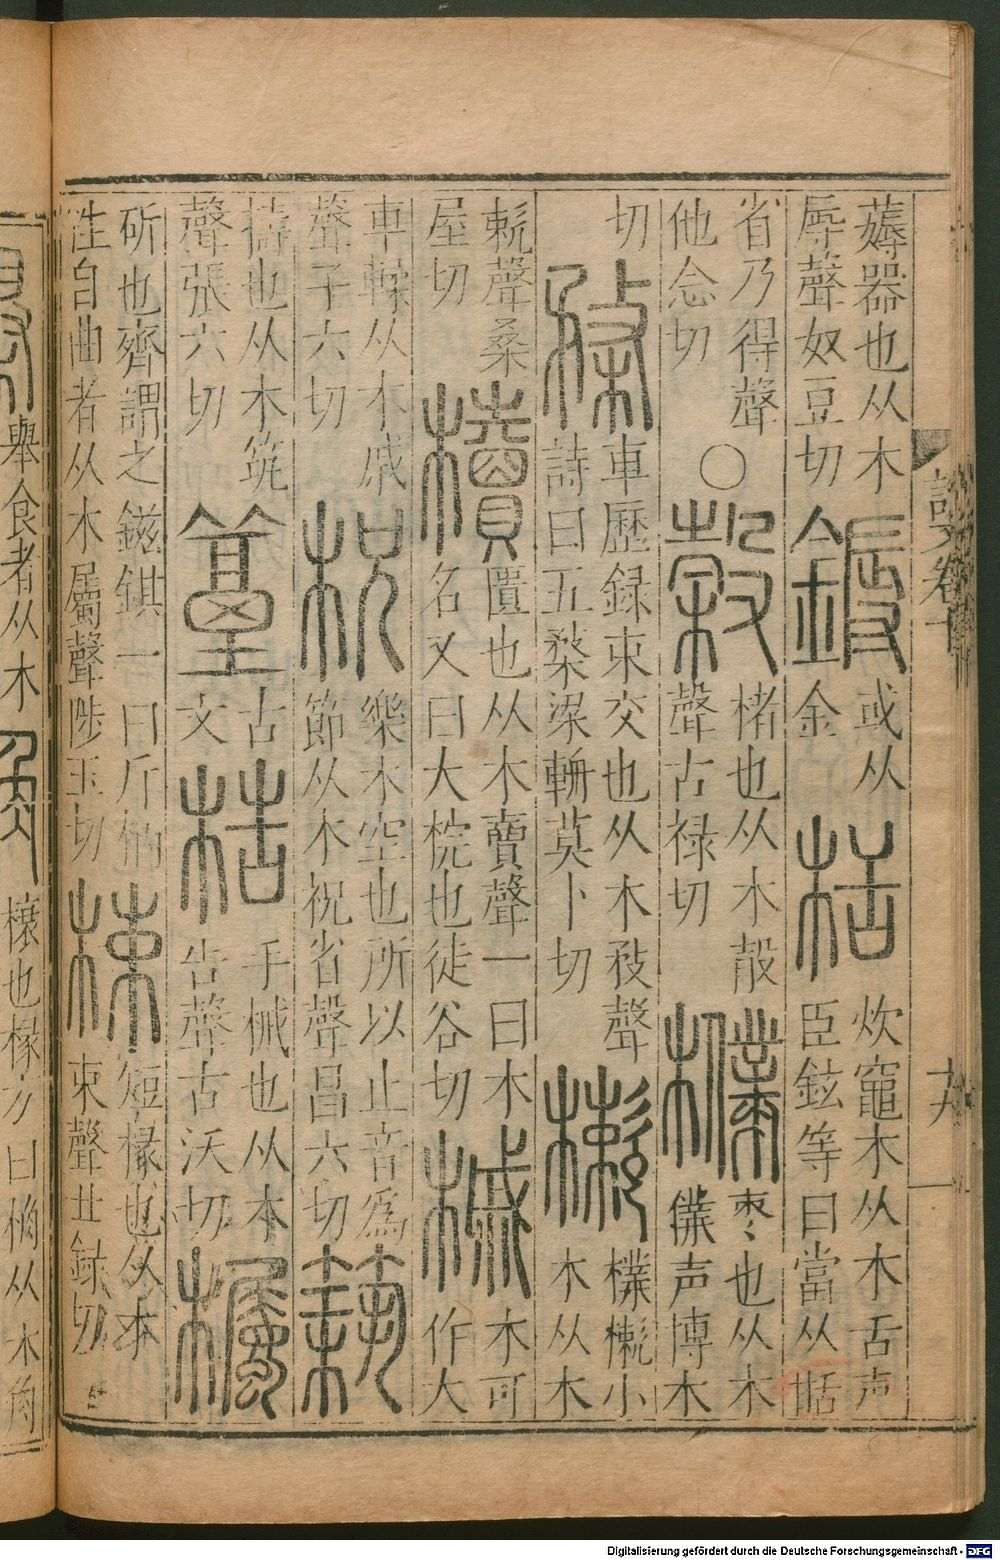 薅器也从木
辱聲奴豆切
鎒
或从
金
栝
炊竈木从木舌声
臣鉉等曰當从𦧈
省乃得聲
他念切
○
榖
楮也从木㱿
聲古禄切
樸
棗也从木
僕声博木
切
楘
車歷録束交也从木敄聲
詩曰五楘梁輈莫卜切
樕
樸樕小
木从木
欶聲桑
屋切
櫝
匱也从木賣聲一曰木
名又曰大梡也徒谷切
槭
木可
作大
車輮从木戚
聲子六切
柷
樂木空也所以止音爲
節从木祝省聲昌六切
築
擣也从木筑
聲張六切
𥲒
古
文
梏
手械也从木
告聲古沃切
欘
斫也齊謂之鎡錤一曰斤柄
性自曲者从木屬聲陟玉切
梀
短椽也从木
束聲丑録切
說文卷十
十九
舉食者从木
榱也椽方曰桷从木角
Digitalisierung gefördert durch die Deutsche Forschungsgemeinschaft - DFG